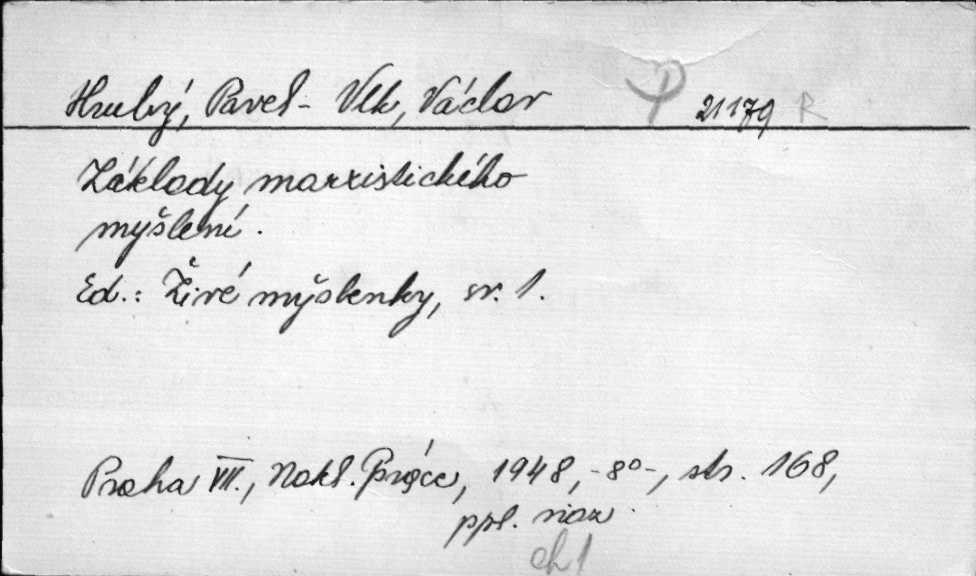 Hrubý, Pavel - Vlk, Václav 21179 R
Základy marxistického
myšlení.
Ed.: Živé myšlenky, sv. 1.
Praha VII., Nakl. Práce, 1948, -8°-, str. 168,
ppl. viaz.
ch 1